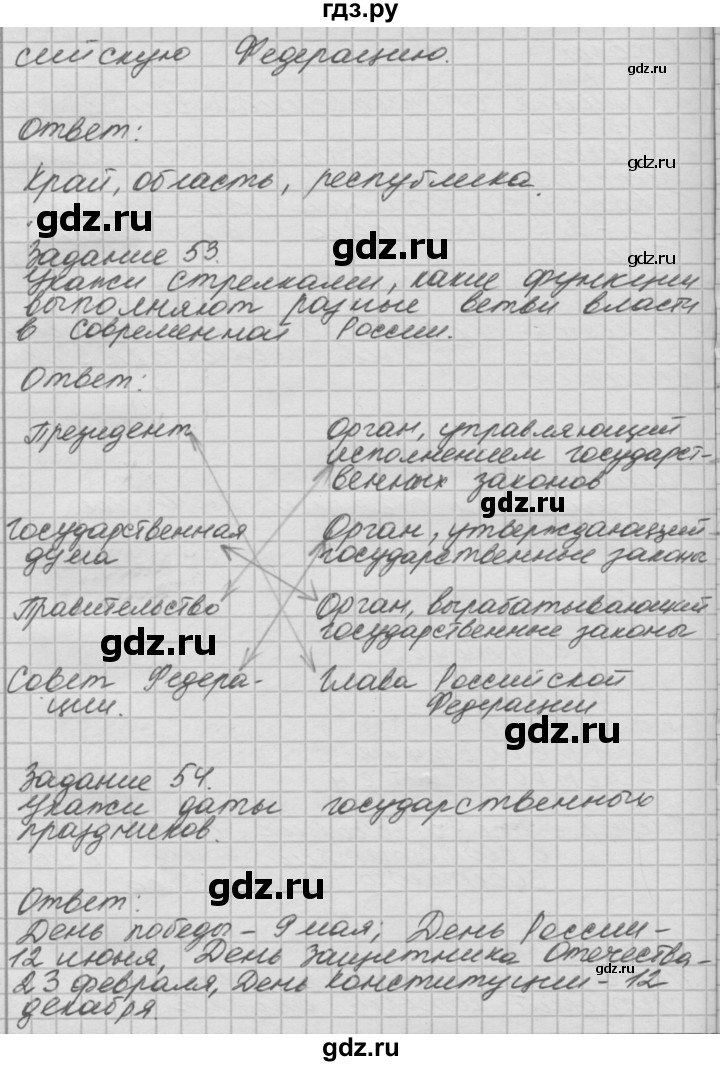 гдз.ру
сийскую Федерацию.
gdz.ru
Ответ:
gdz.ru
Край, область, республика.
gdz.ru
gdz.ru
gdz.ru
Задание 53.
Укажи стрелками, какие функции
выполняют разные ветви власти
в современной России.
Ответ:
Президент
Орган, управляющий
исполнением государст-
венных законов
gdz.ru
Государственная
дума
Орган, утверждающий
государственные законы
Правительство
Орган, вырабатывающий
государственные законы
gdz.ru
Совет Федера-
ции.
Глава Российской
Федерации
gdz.ru
Задание 54.
Укажи даты государственных
праздников.
gdz.ru
Ответ:
День победы - 9 мая; День России -
12 июня, День Защитника Отечества -
23 февраля, День Конституции - 12
декабря.
gdz.ru
gdz.ru
gdz.ru